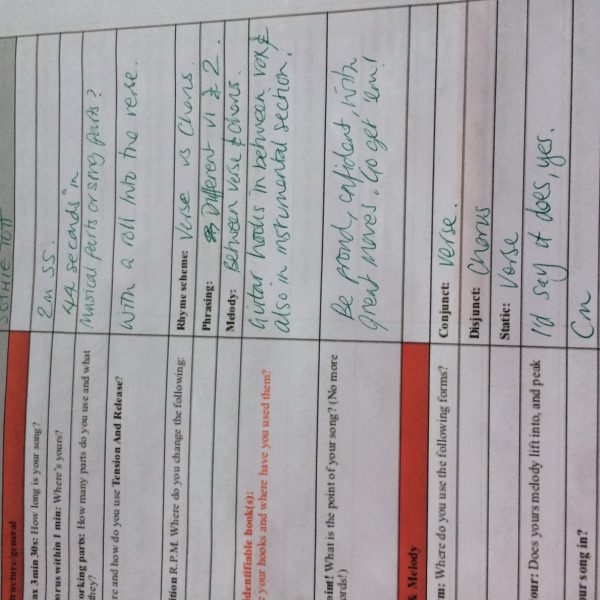 SOPHIE TOTT
ructure:general
ax 3min 30s: How long is your song?
2m 55.
orus within 1 min: Where's yours?
44 seconds in
orking parts: How many parts do you use and what
they?
Musical parts or song parts?
re and how do you use Tension And Release?
With a roll into the verse.
ition R.P.M. Where do you change the following:
Rhyme scheme: Verse vs Chorus
Phrasing: Different V1 & 2.
Melody: Between verse & chorus.
dentifiable hook(s):
your hooks and where have you used them?
Guitar hooks in between vox &
also in instrumental section.
oint! What is the point of your song? (No more
ords!)
Be proud, confident, with
great moves. Go get 'em!
& Melody
m: Where do you use the following forms?
Conjunct: Verse.
Disjunct: Chorus
Static: Verse
our: Does yours melody lift into, and peak
I'd say it does, yes.
our song in?
Cm